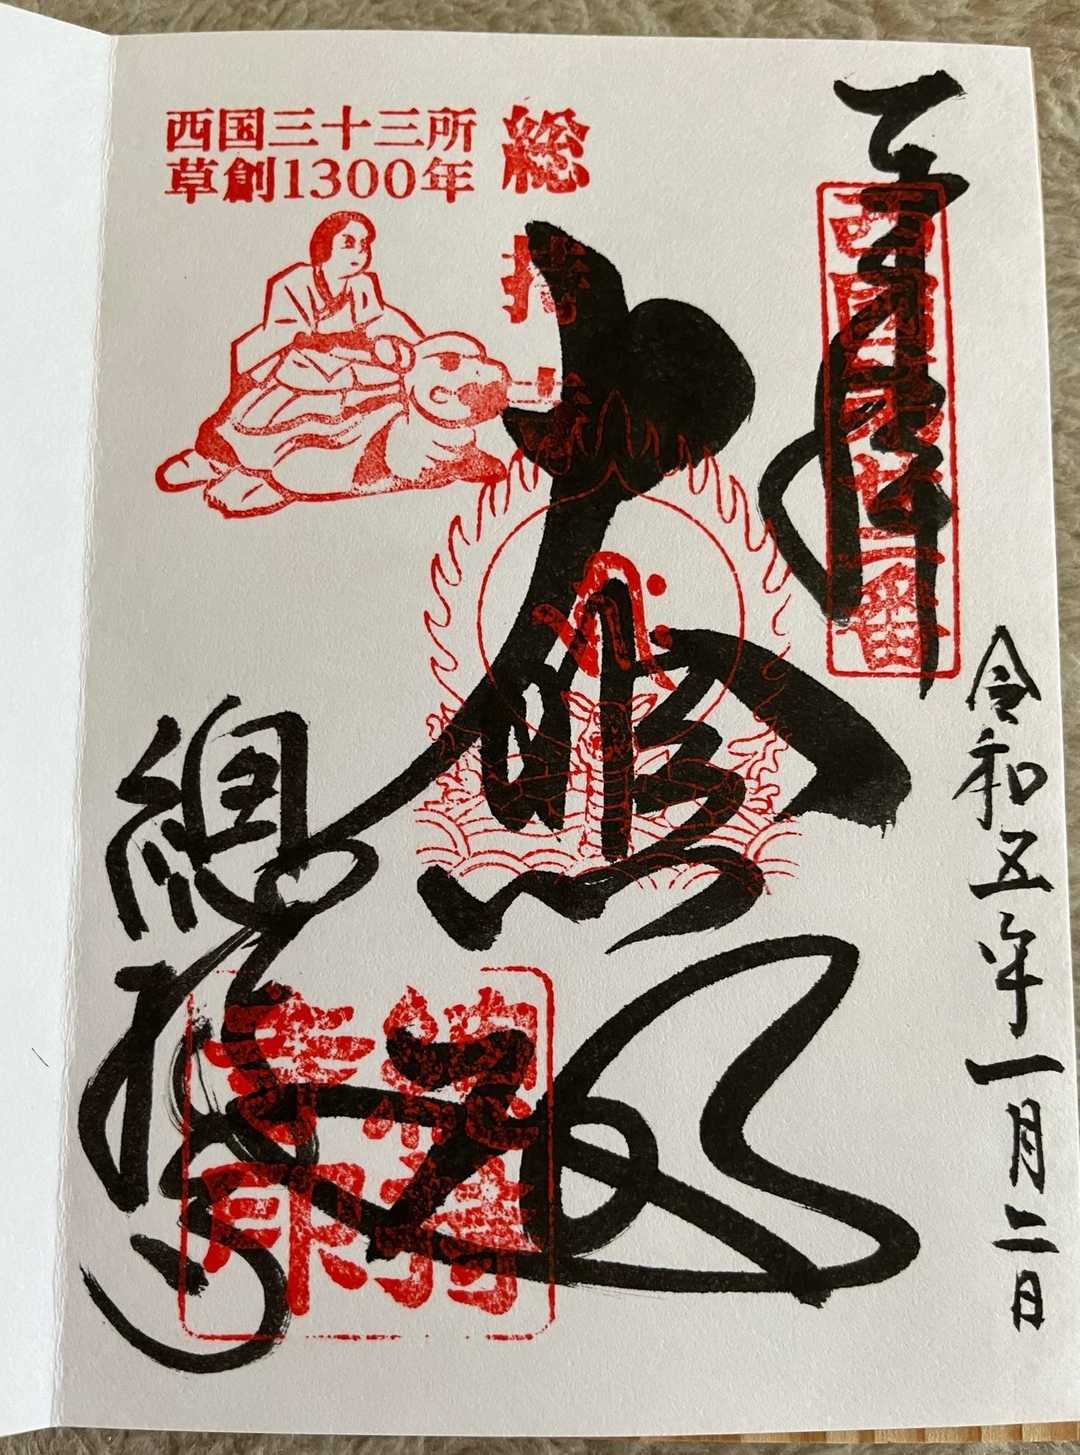 奉拝
西國第廿二番
令和五年一月二日
大悲殿
総持寺
西国三十三所
草創1300年
總持寺
總持寺印